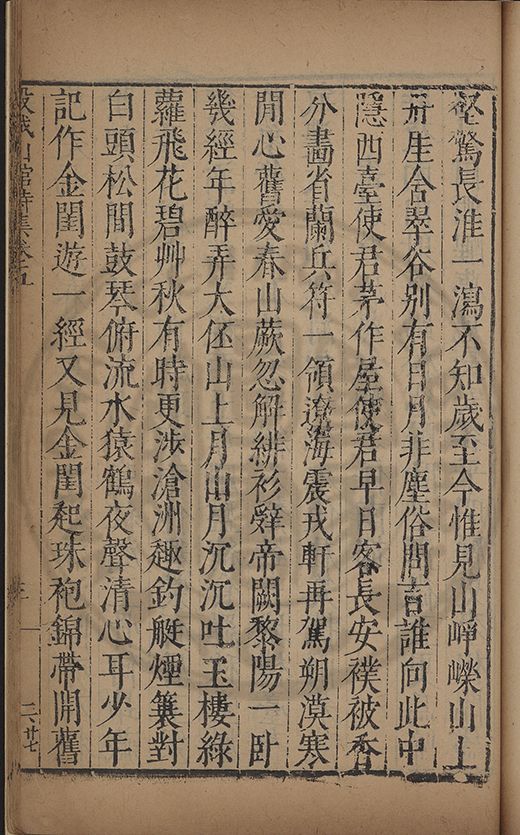 堅驚長淮一瀉不知歲至今惟見山崢嶸山上
丹生舍翠谷别有日月非塵俗問言誰向此中
隱西臺使君茅作屋使君早日客長安襆被
分畫省蘭兵符一領遼海震戎軒再駕朔漠寒
閒心舊愛春山蕨忽解緋衫辤帝闕黎陽一卧
幾經年醉弄大伾山上月山月沉沉吐玉樓綠
蘿飛花碧艸秋有時更涉滄洲趣釣艇煙簑對
白頭松間鼓琴俯流水猿鶴夜聲清心耳少年
記作金閨遊一經又見金閨起珠袍錦帶開舊
山館詩集卷五
二ノ廿七